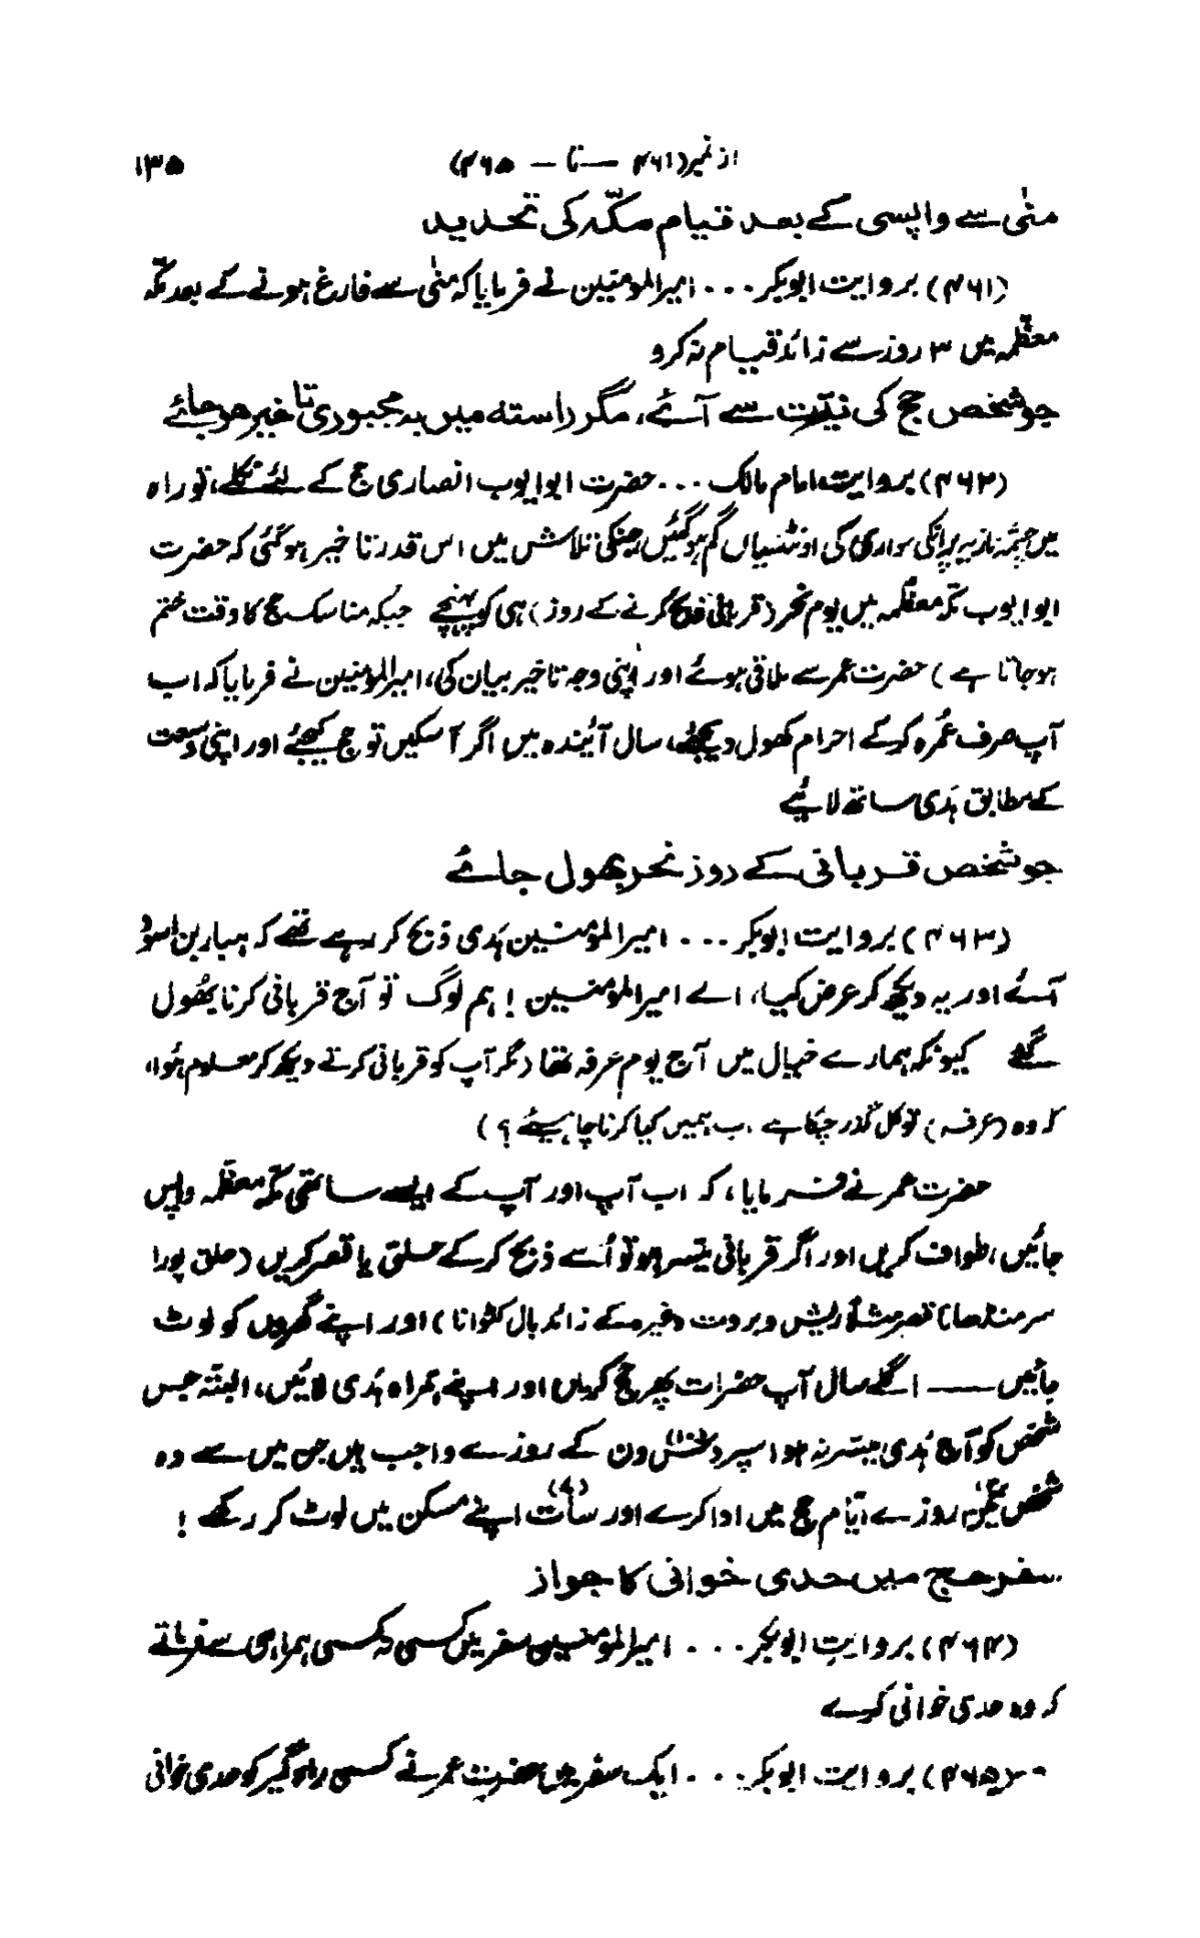 از نمبر (۴۶۱ — تا — ۴۶۵) ۱۳۵
منٰی سے واپسی کے بعد قیام مکّہ کی تحدید
(۴۶۱) بروایت ابوبکر ... امیرالمؤمنین نے فرمایا کہ منٰی سے فارغ ہونے کے بعد مکّہ
معظّمہ میں ۳ روز سے زائد قیام نہ کرو
جو شخص حج کی نیّت سے آئے، مگر راستہ میں بہ مجبوری تاخیر ہوجائے
(۴۶۲) بروایت امام مالک ... حضرت ابوایوب انصاری حج کے لئے نکلے، تو راہ
میں چشمہ نازیہ پر انکی سواری کی اونٹنیاں گم ہوگئیں جنکی تلاش میں اس قدر تاخیر ہوگئی کہ حضرت
ابوایوب مکّہ معظّمہ میں یوم نحر (قربانی ذبح کرنے کے روز) ہی کو پہنچے جبکہ مناسک حج کا وقت ختم
ہوجاتا ہے) حضرت عمر سے ملاقی ہوئے اور اپنی وجہ تاخیر بیان کی، امیرالمؤمنین نے فرمایا کہ اب
آپ صرف عُمرہ کرکے احرام کھول دیجئے، سال آئیندہ میں اگر آسکیں تو حج کیجئے اور اپنی وسعت
کے مطابق ہَدی ساتھ لائیے
جو شخص قربانی کے روز نحر بھول جائے
(۴۶۳) بروایت ابوبکر ... امیرالمؤمنین ہَدی ذبح کر رہے تھے کہ ہبار بن اسود
آئے اور یہ دیکھ کر عرض کیا، اے امیرالمؤمنین! ہم لوگ تو آج قربانی کرنا بھُول
گئے کیونکہ ہمارے خیال میں آج یوم عرفہ تھا (مگر آپ کو قربانی کرتے دیکھ کر معلوم ہُوا،
کہ وہ (عرفہ) تو کل گذر چکا ہے، اب ہمیں کیا کرنا چاہیئے؟)
حضرت عمر نے فرمایا، کہ اب آپ اور آپ کے ایسے ساتھی مکّہ معظّمہ واپس
جائیں، طواف کریں اور اگر قربانی میسر ہو تو اُسے ذبح کرکے حلق یا قصر کریں (حلق پورا
سر منڈھا) قصر مثلاً ریش و بروت وغیرہ کے زائد بال کٹوانا) اور اپنے گھروں کو لوٹ
جائیں —— اگلے سال آپ حضرات پھر حج کریں اور اپنے ہمراہ ہَدی لائیں، البتّہ جس
شخص کو آج ہَدی میسّر نہ ہو اسپر دس(۱۰) دن کے روزے واجب ہیں جن میں سے وہ
شخص تین روزے ایّام حج میں ادا کرے اور سات(۷) اپنے مسکن میں لوٹ کر رکھے!
سفر حج میں حدی خوانی کا جواز
(۴۶۴) بروایت ابوبکر ... امیرالمؤمنین سفر میں کسی نہ کسی ہمراہی سے فرماتے
کہ وہ حدی خوانی کرے
(۴۶۵) بروایت ابوبکر ... ایک سفر میں حضرت عمر نے کسی راہگیر کو حدی خوانی